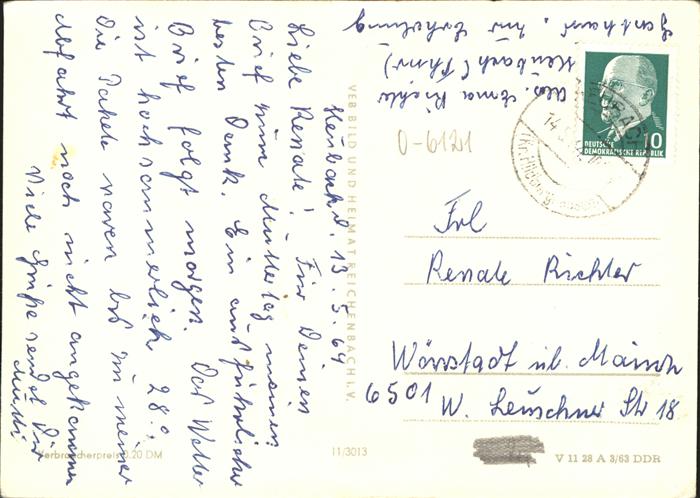 Heubach d. 13.5.64
Liebe Renate! Für Deinen
Brief zum Muttertag meinen
besten Dank. Ein ausführlicher
Brief folgt morgen. Das Wetter
ist hochsommerlich 28°.
Die Pakete waren bis zu meiner
Abfahrt noch nicht angekommen
Viele Grüße sendet Dir
Mutti
Abs. Erna Richter
Heubach (Thür)
Gasthaus zur Erholung
VEB BILD UND HEIMAT REICHENBACH I. V.
0-6121
DEUTSCHE
DEMOKRATISCHE REPUBLIK
10
14.5.
(Kr. Hildburghausen)
Frl
Renate Richter
Wörrstadt üb. Mainz
6501 W. Leuschner Str 18
Verbraucherpreis 0.20 DM
11/3013
V 11 28 A 3/63 DDR